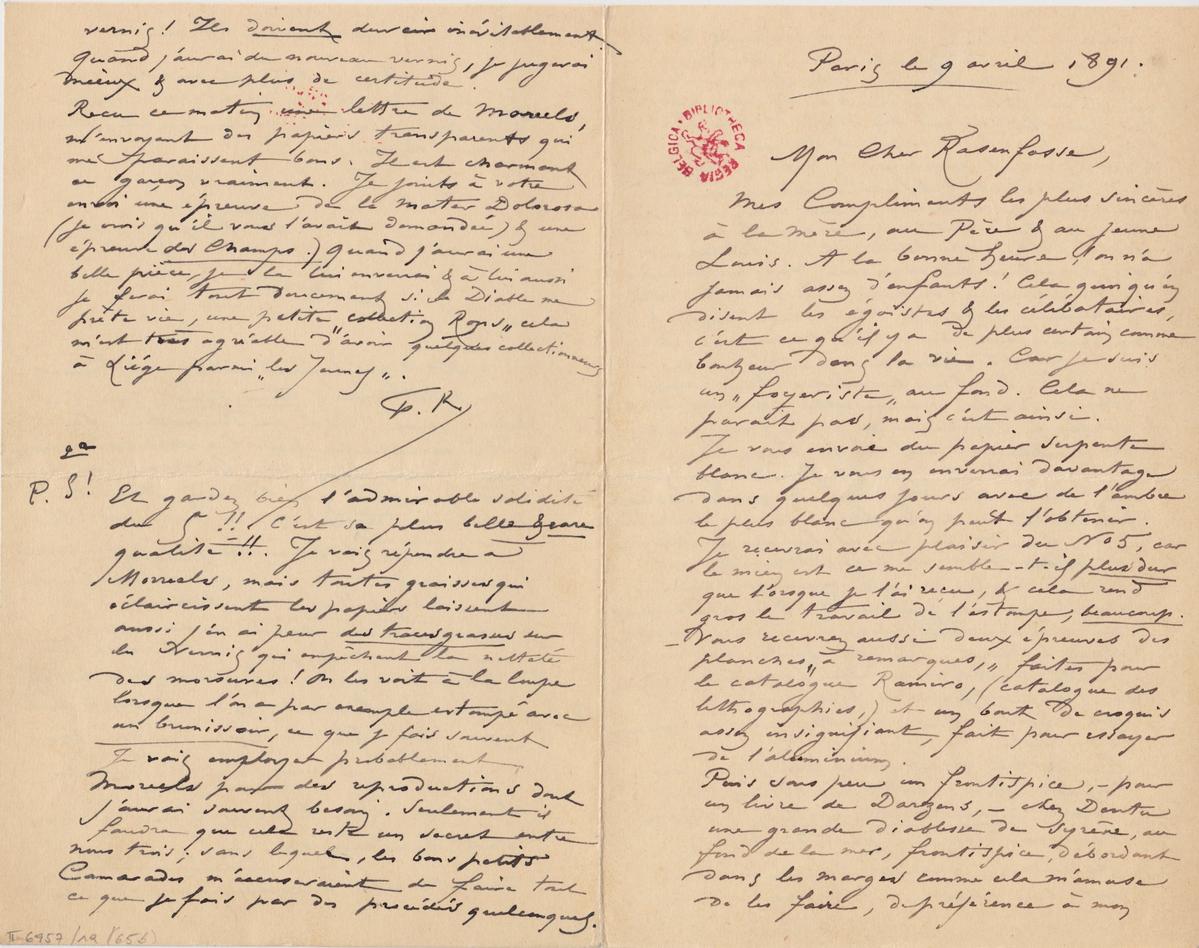 Paris le 9 avril 1891.
BIBLIOTHECA REGIA BELGICA
Mon Cher Rasenfosse,
Mes Compliments les plus sincères
à la mère, au Père & au jeune
Louis. A la bonne heure, on n'a
jamais assez d'enfants! Cela quoiqu'en
disent les égoïstes & les célibataires,
c'est ce qu'il y a de plus certain comme
bonheur dans la vie. Car je suis
un „foyeriste„ au fond. Cela ne
parait pas, mais c'est ainsi.
Je vous envoie du papier serpente
blanc. Je vous en enverrai davantage
dans quelques jours avec de l'ambre
le plus blanc qu'on peut l'obtenir.
Je recevrai avec plaisir du No 5, car
le mien est ce me semble-t-il plus dur
que lorsque je l'ai reçu, & cela rend
gros le travail de l'estompe, beaucoup.
– Vous recevrez aussi deux épreuves des
planches „à remarques,„ faites pour
le catalogue Ramiro, (catalogue des
lithographies,) et un bout de croquis
assez insignifiant, fait pour essayer
de l'aluminium.
Puis sous peu un frontispice, – pour
un livre de Darzens, – chez Dentu
une grande diablesse de Syrène, au
fond de la mer, frontispice débordant
dans les marges comme cela m'amuse
de les faire, de préférence à mon
vernis! Ils doivent durcir inévitablement
quand j'aurai du nouveau vernis, je jugerai
mieux & avec plus de certitude.
Reçu ce matin une lettre de Moreels,
m'envoyant des papiers transparents qui
me paraissent bons. Il est charmant
ce garçon vraiment. Je joints à votre
envoi une épreuve de la Mater Dolorosa
(je crois qu'il vous l'avait demandée) & une
épreuve des Champs.) Quand j'aurai une
belle pièce, je la lui enverrai & à lui aussi
je ferai tout doucement si le Diable me
prête vie, une petite „collection Rops„ cela
m'est très agréable d'avoir quelques collectionneurs
à Liége parmi „les Jeunes„.
F. R.
P. S!
Et gardez bien l'admirable solidité
du 5!! C'est sa plus belle & rare
qualité!!. Je vais répondre à
Moreels, mais toutes graisses qui
éclaircissent les papiers laissent
aussi j'en ai peur des traces grasses sur
le Vernis qui empêchent la netteté
des morsures! On les voit à la loupe
lorsque l'on a par exemple estompé avec
un brunissoir, ce que je fais souvent
Je vais employer probablement
Moreels pour des reproductions dont
j'aurai souvent besoin. Seulement il
faudra que cela reste un secret entre
nous trois; sans lequel, les bons petits
Camarades m'accuseraient de faire tout
ce que je fais par des procédés quelconques.
II 6957/19 (65b)